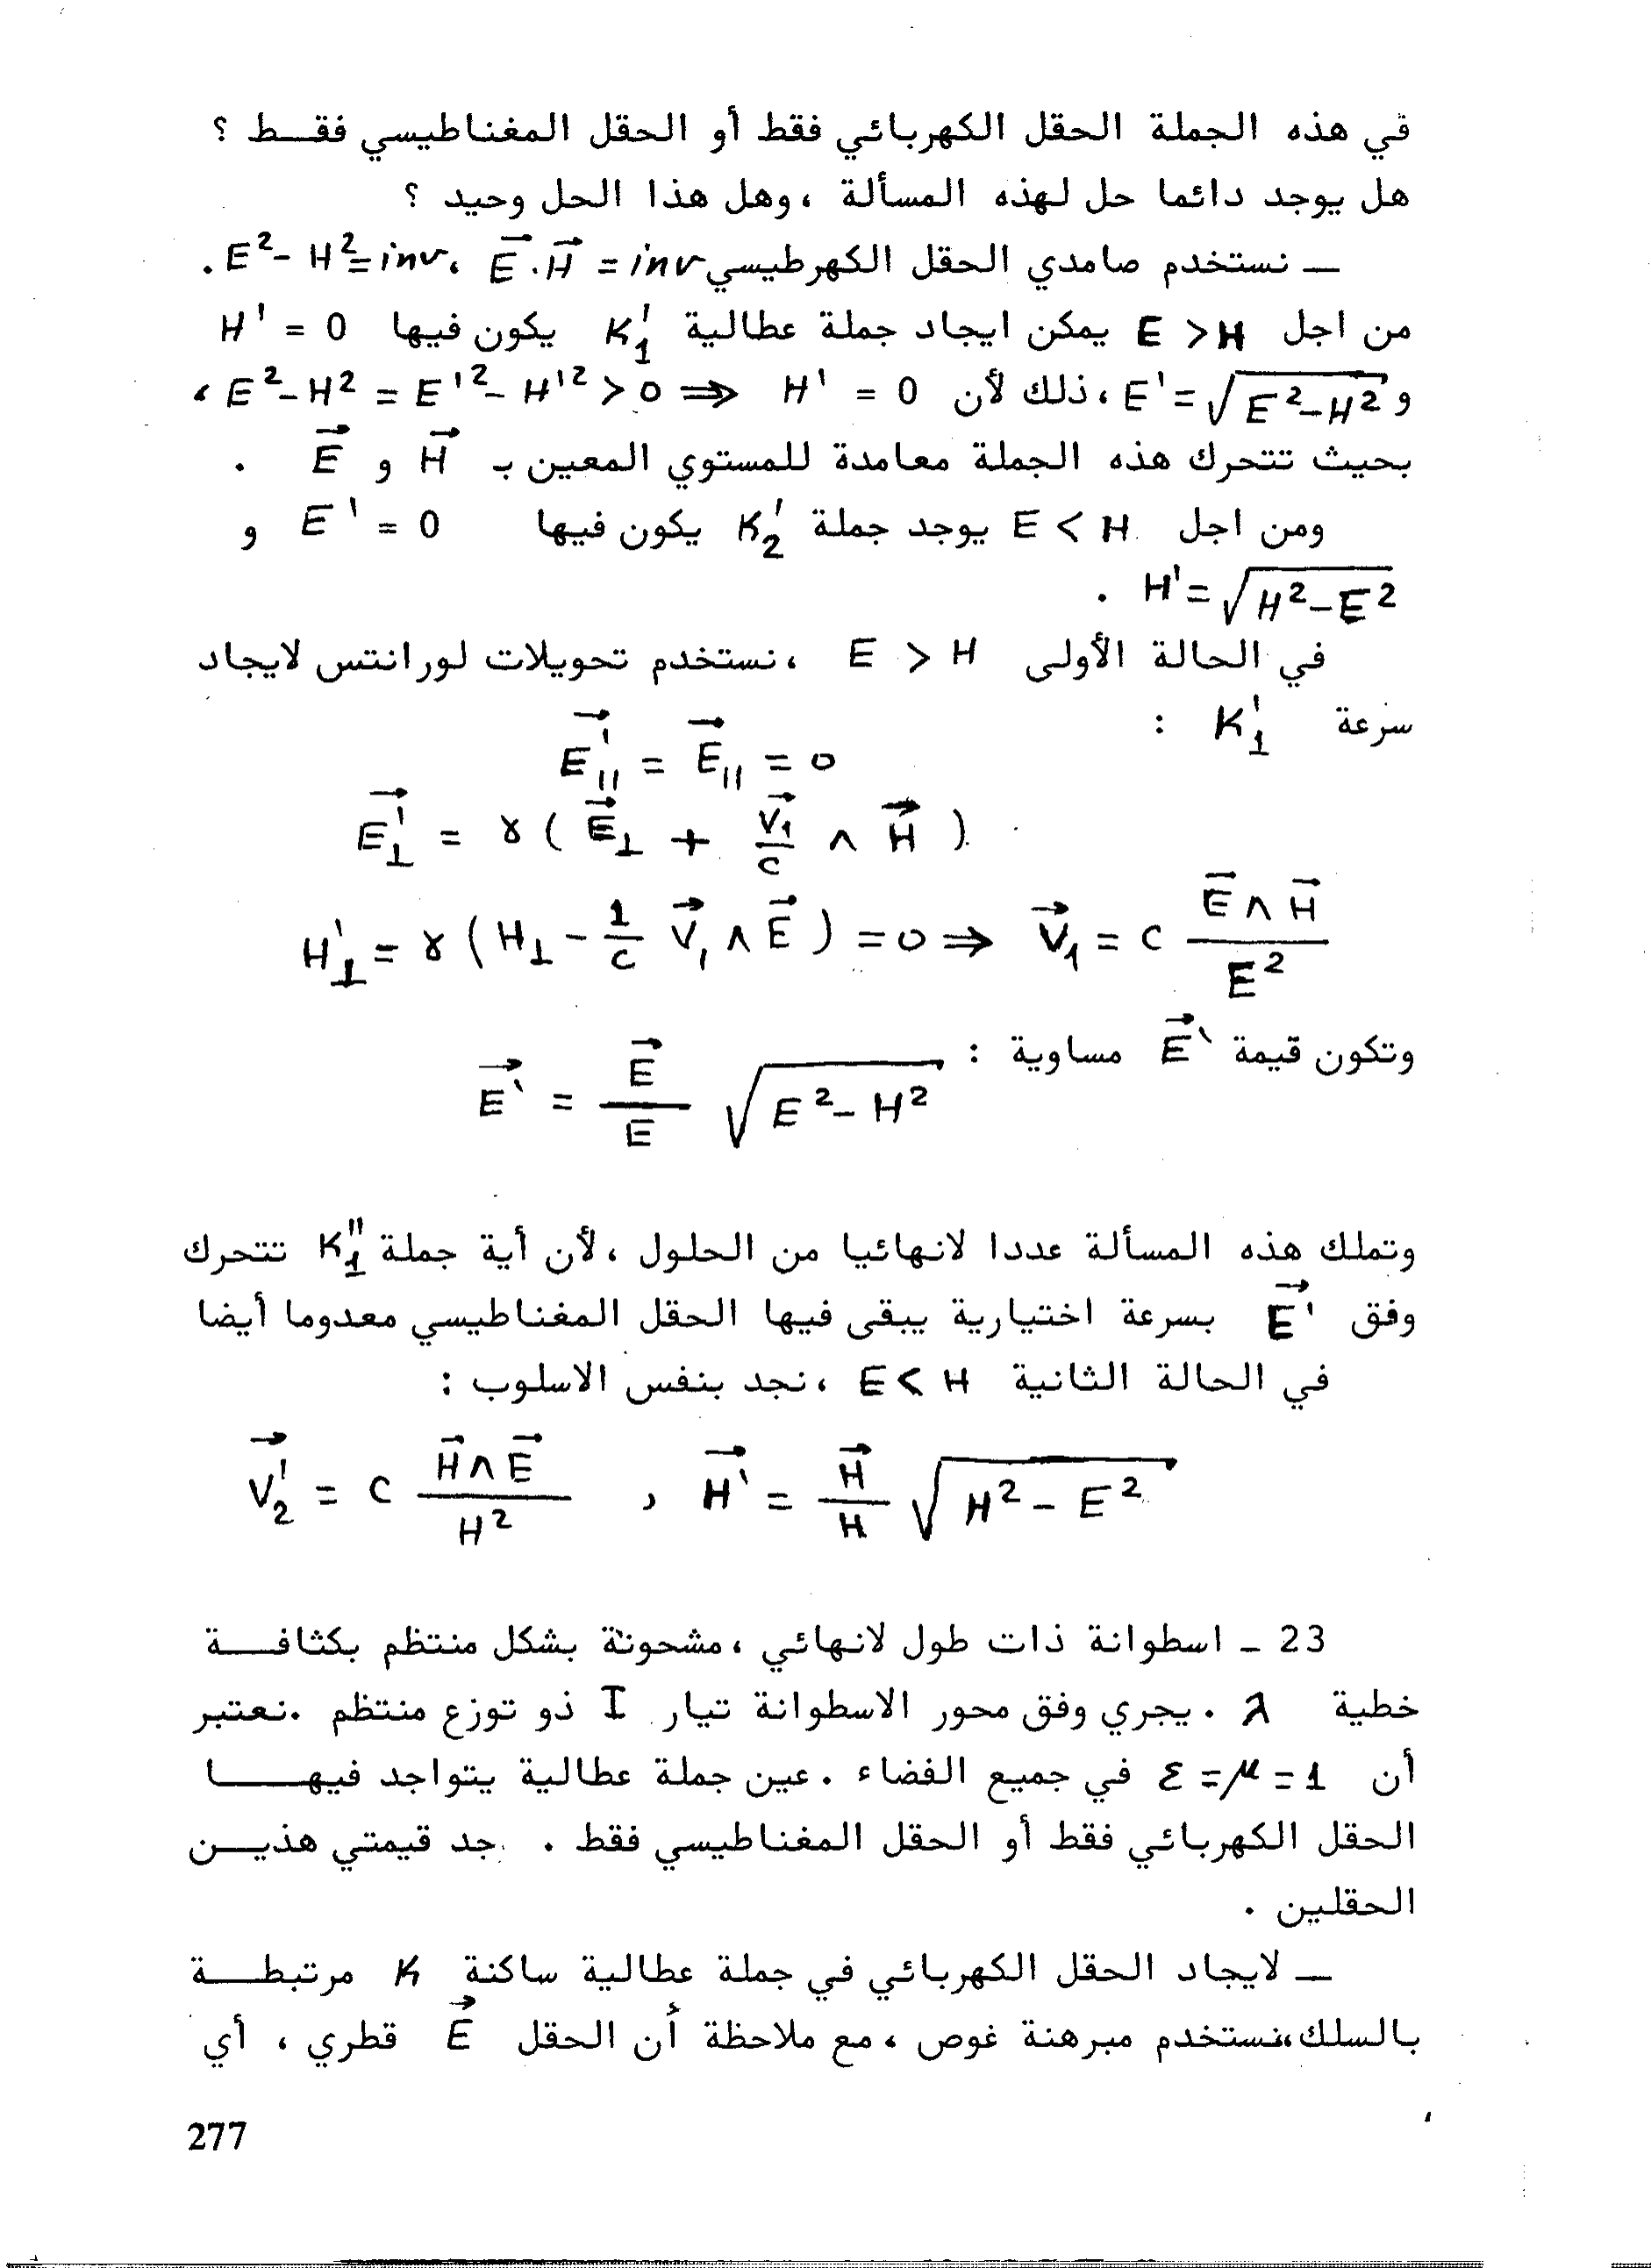 في هذه الجملة الحقل الكهربائي فقط أو الحقل المغناطيسي فقــط ؟
هل يوجد دائما حل لهذه المسألة ،وهل هذا الحل وحيد ؟
— نستخدم صامدي الحقل الكهرطيسي E⃗.H⃗ = inv ،E²- H²=inv .
من اجل E >H يمكن ايجاد جملة عطالية K'₁ يكون فيها H' = 0
و E'=√(E²-H²) ،ذلك لأن E²-H² = E'²- H'² > 0 ⇒ H' = 0 ،
بحيث تتحرك هذه الجملة معامدة للمستوي المعين بـ H⃗ و E⃗ .
ومن اجل E < H يوجد جملة K'₂ يكون فيها E' = 0 و
H'=√(H²-E²) .
في الحالة الأولى E > H ،نستخدم تحويلات لورانتس لايجاد
سرعة K'₁ :
E⃗'∥ = E⃗∥ = 0
E⃗'⊥ = γ ( E⃗⊥ + V⃗₁/c ∧ H⃗ )
H'⊥ = γ ( H⊥ - 1/c V⃗₁ ∧ E⃗ ) = 0 ⇒ V⃗₁ = c (E⃗ ∧ H⃗)/E²
وتكون قيمة E⃗' مساوية :
E⃗' = E⃗/E √(E²- H²)
وتملك هذه المسألة عددا لانهائيا من الحلول ،لأن أية جملة K''₁ تتحرك
وفق E⃗' بسرعة اختيارية يبقى فيها الحقل المغناطيسي معدوما أيضا
في الحالة الثانية E< H ،نجد بنفس الاسلوب :
V⃗'₂ = c (H⃗ ∧ E⃗)/H² , H⃗' = H⃗/H √(H² - E²)
23 - اسطوانة ذات طول لانهائي ،مشحونة بشكل منتظم بكثافــة
خطية λ .يجري وفق محور الاسطوانة تيار I ذو توزع منتظم .نعتبر
أن ε =μ = 1 في جميع الفضاء .عين جملة عطالية يتواجد فيهــا
الحقل الكهربائي فقط أو الحقل المغناطيسي فقط . جد قيمتي هذيــن
الحقلين .
— لايجاد الحقل الكهربائي في جملة عطالية ساكنة K مرتبطــة
بالسلك،نستخدم مبرهنة غوص ،مع ملاحظة أن الحقل E⃗ قطري ، أي
277